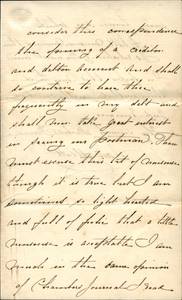 consider this correspondence
the opening of a creditor
and debtor account and shall
so contrive to have thee
frequently in my debt and
shall ever take great interest
in seeing my Postman. Thou
must excuse this bit of nonsense
though it is true but I am
sometimes so light hearted
and full of fun that a little
nonsense is acceptable I am
much in the same opinion
of Chambers Journal I read